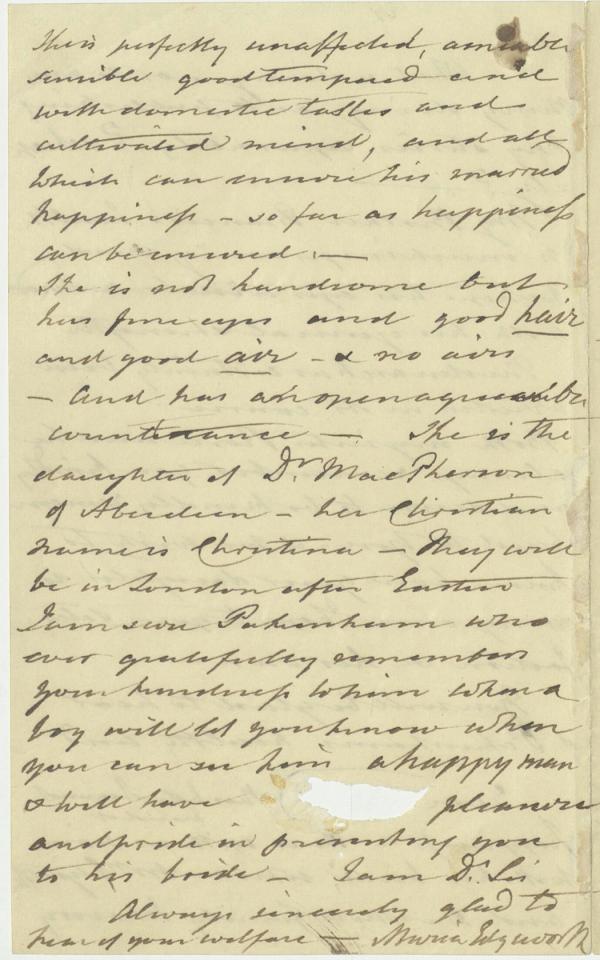 She is perfectly unaffected, amiable
sensible goodtempered and
with domestic tastes and
cultivated mind, and all
which can ensure his married
happiness - so far as happiness
can be ensured . —
She is not handsome but
has fine eyes and good hair
and good air - & no airs
- And has an open agreeable
countenance — She is the
daughter of Dr. MacPherson
of Aberdeen - her Christian
name is Christina - They will
be in London after Easter
I am sure Pakenham who
ever gratefully remembers
your kindness to him when a
boy will let you know when
you can see him a happy man
& will have pleasure
and pride in presenting you
to his bride - I am Dr. Sir
Always sincerely glad to
hear of your welfare — Maria Edgeworth